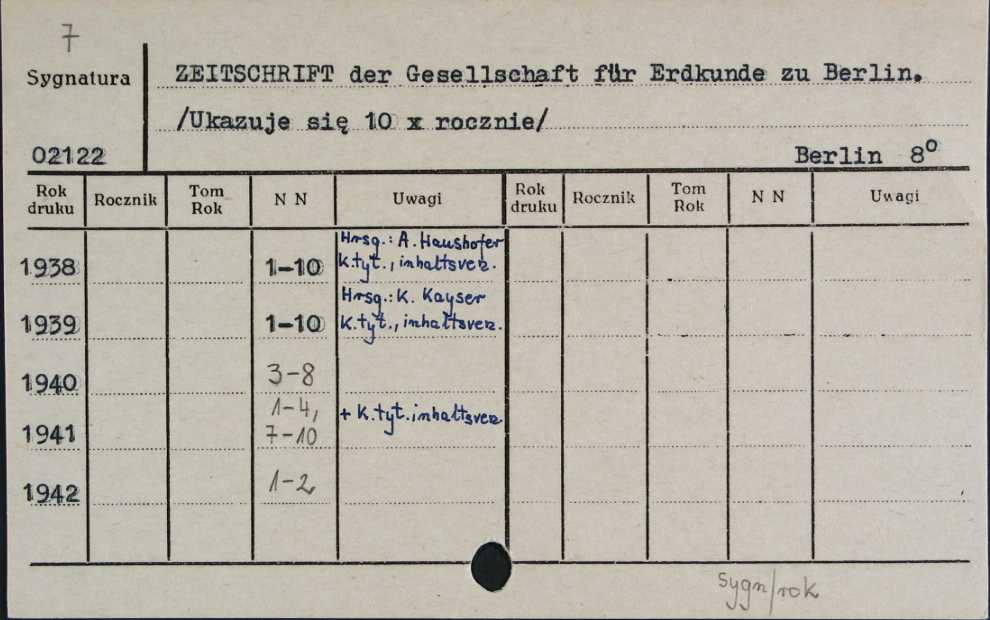 7
Sygnatura
ZEITSCHRIFT der Gesellschaft für Erdkunde zu Berlin.
/Ukazuje się 10 x rocznie/
02122
Berlin 8⁰
Rok druku Rocznik Tom Rok N N Uwagi Rok druku Rocznik Tom Rok N N Uwagi
Hrsg.: A. Haushofer
1938 1-10 K.tyt., inhaltsverz.
Hrsg.: K. Kayser
1939 1-10 K.tyt., inhaltsverz.
1940 3-8
1-4, + K.tyt. inhaltsverz.
1941 7-10
1942 1-2
sygn/rok